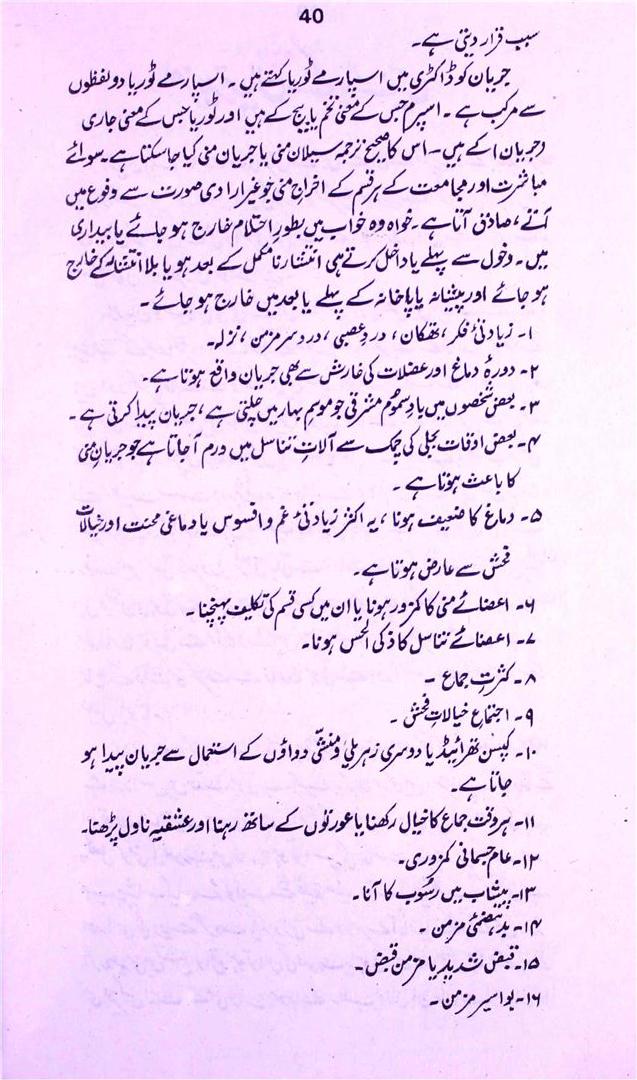 40
سبب قرار دیتی ہے۔
جریان کو ڈاکٹری میں اسپارمے ٹوریا کہتے ہیں ۔ اسپارمے ٹوریا دو لفظوں
سے مرکب ہے ۔ اسپرم جس کے معنی تخم یا بیج کے ہیں اور ٹوریا جس کے معنی جاری
(جریان) کے ہیں ۔ اس کا صحیح ترجمہ سیلان منی یا جریان منی کیا جا سکتا ہے ۔ سوائے
مباشرت اور مجامعت کے ہر قسم کے اخراج منی جو غیر ارادی صورت سے وقوع میں
آئے ، صادق آتا ہے ۔ خواہ وہ خواب میں بطور احتلام خارج ہو جائے یا بیداری
میں ۔ دخول سے پہلے یا داخل کرتے ہی انتشار نامکمل کے بعد ہو یا بلا انتشار کے خارج
ہو جائے اور پیشاب یا پاخانہ کے پہلے یا بعد میں خارج ہو جائے ۔
۱۔ زیادتیٔ فکر ، تھکان ، درد عصبی ، درد سر مزمن ، نزلہ۔
۲۔ دورۂ دماغ اور عضلات کی خارش سے بھی جریان واقع ہوتا ہے۔
۳۔ بعض شخصوں میں باد سموم مشرقی جو موسم بہار میں چلتی ہے ، جریان پیدا کرتی ہے ۔
۴۔ بعض اوقات بجلی کی چمک سے آلات تناسل میں ورم آ جاتا ہے جو جریان منی
کا باعث ہوتا ہے ۔
۵۔ دماغ کا ضعیف ہونا ، یہ اکثر زیادتیٔ غم و افسوس یا دماغی محنت اور خیالات
فحش سے عارض ہوتا ہے۔
۶۔ اعضائے منی کا کمزور ہونا یا ان میں کسی قسم کی تکلیف پہنچنا ۔
۷۔ اعضائے تناسل کا ذکی الحس ہونا۔
۸۔ کثرتِ جماع ۔
۹۔ اجتماع خیالات فحش ۔
۱۰۔ کپسن تھرائیڈ یا دوسری زہریلی و منشّی دواؤں کے استعمال سے جریان پیدا ہو
جاتا ہے۔
۱۱۔ ہر وقت جماع کا خیال رکھنا یا عورتوں کے ساتھ رہنا اور عشقیہ ناول پڑھنا۔
۱۲۔ عام جسمانی کمزوری۔
۱۳۔ پیشاب میں رسوب کا آنا۔
۱۴۔ بدہضمئ مزمن ۔
۱۵۔ قبض شدید یا مزمن قبض ۔
۱۶۔ بواسیر مزمن ۔